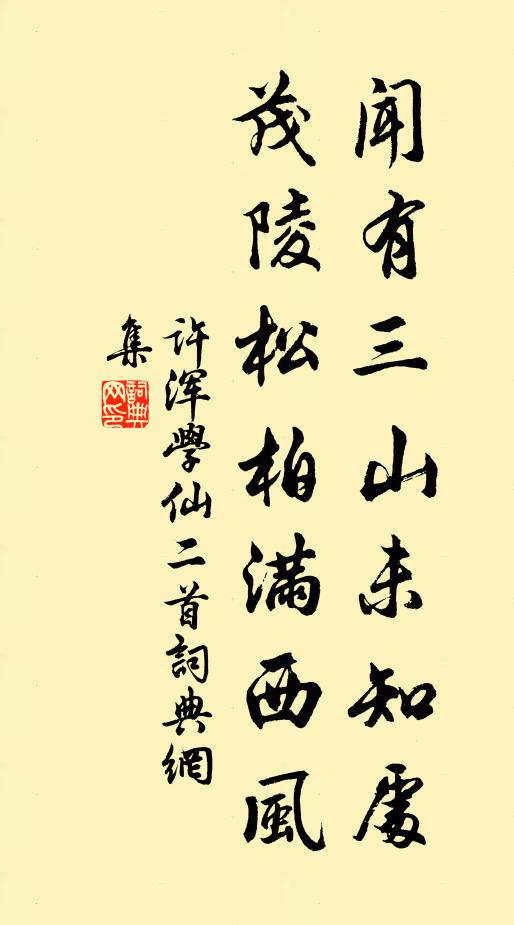 闻有三山未知處
茂陵松柏满西風
许渾學仙二首詞典網
集
詞典網印